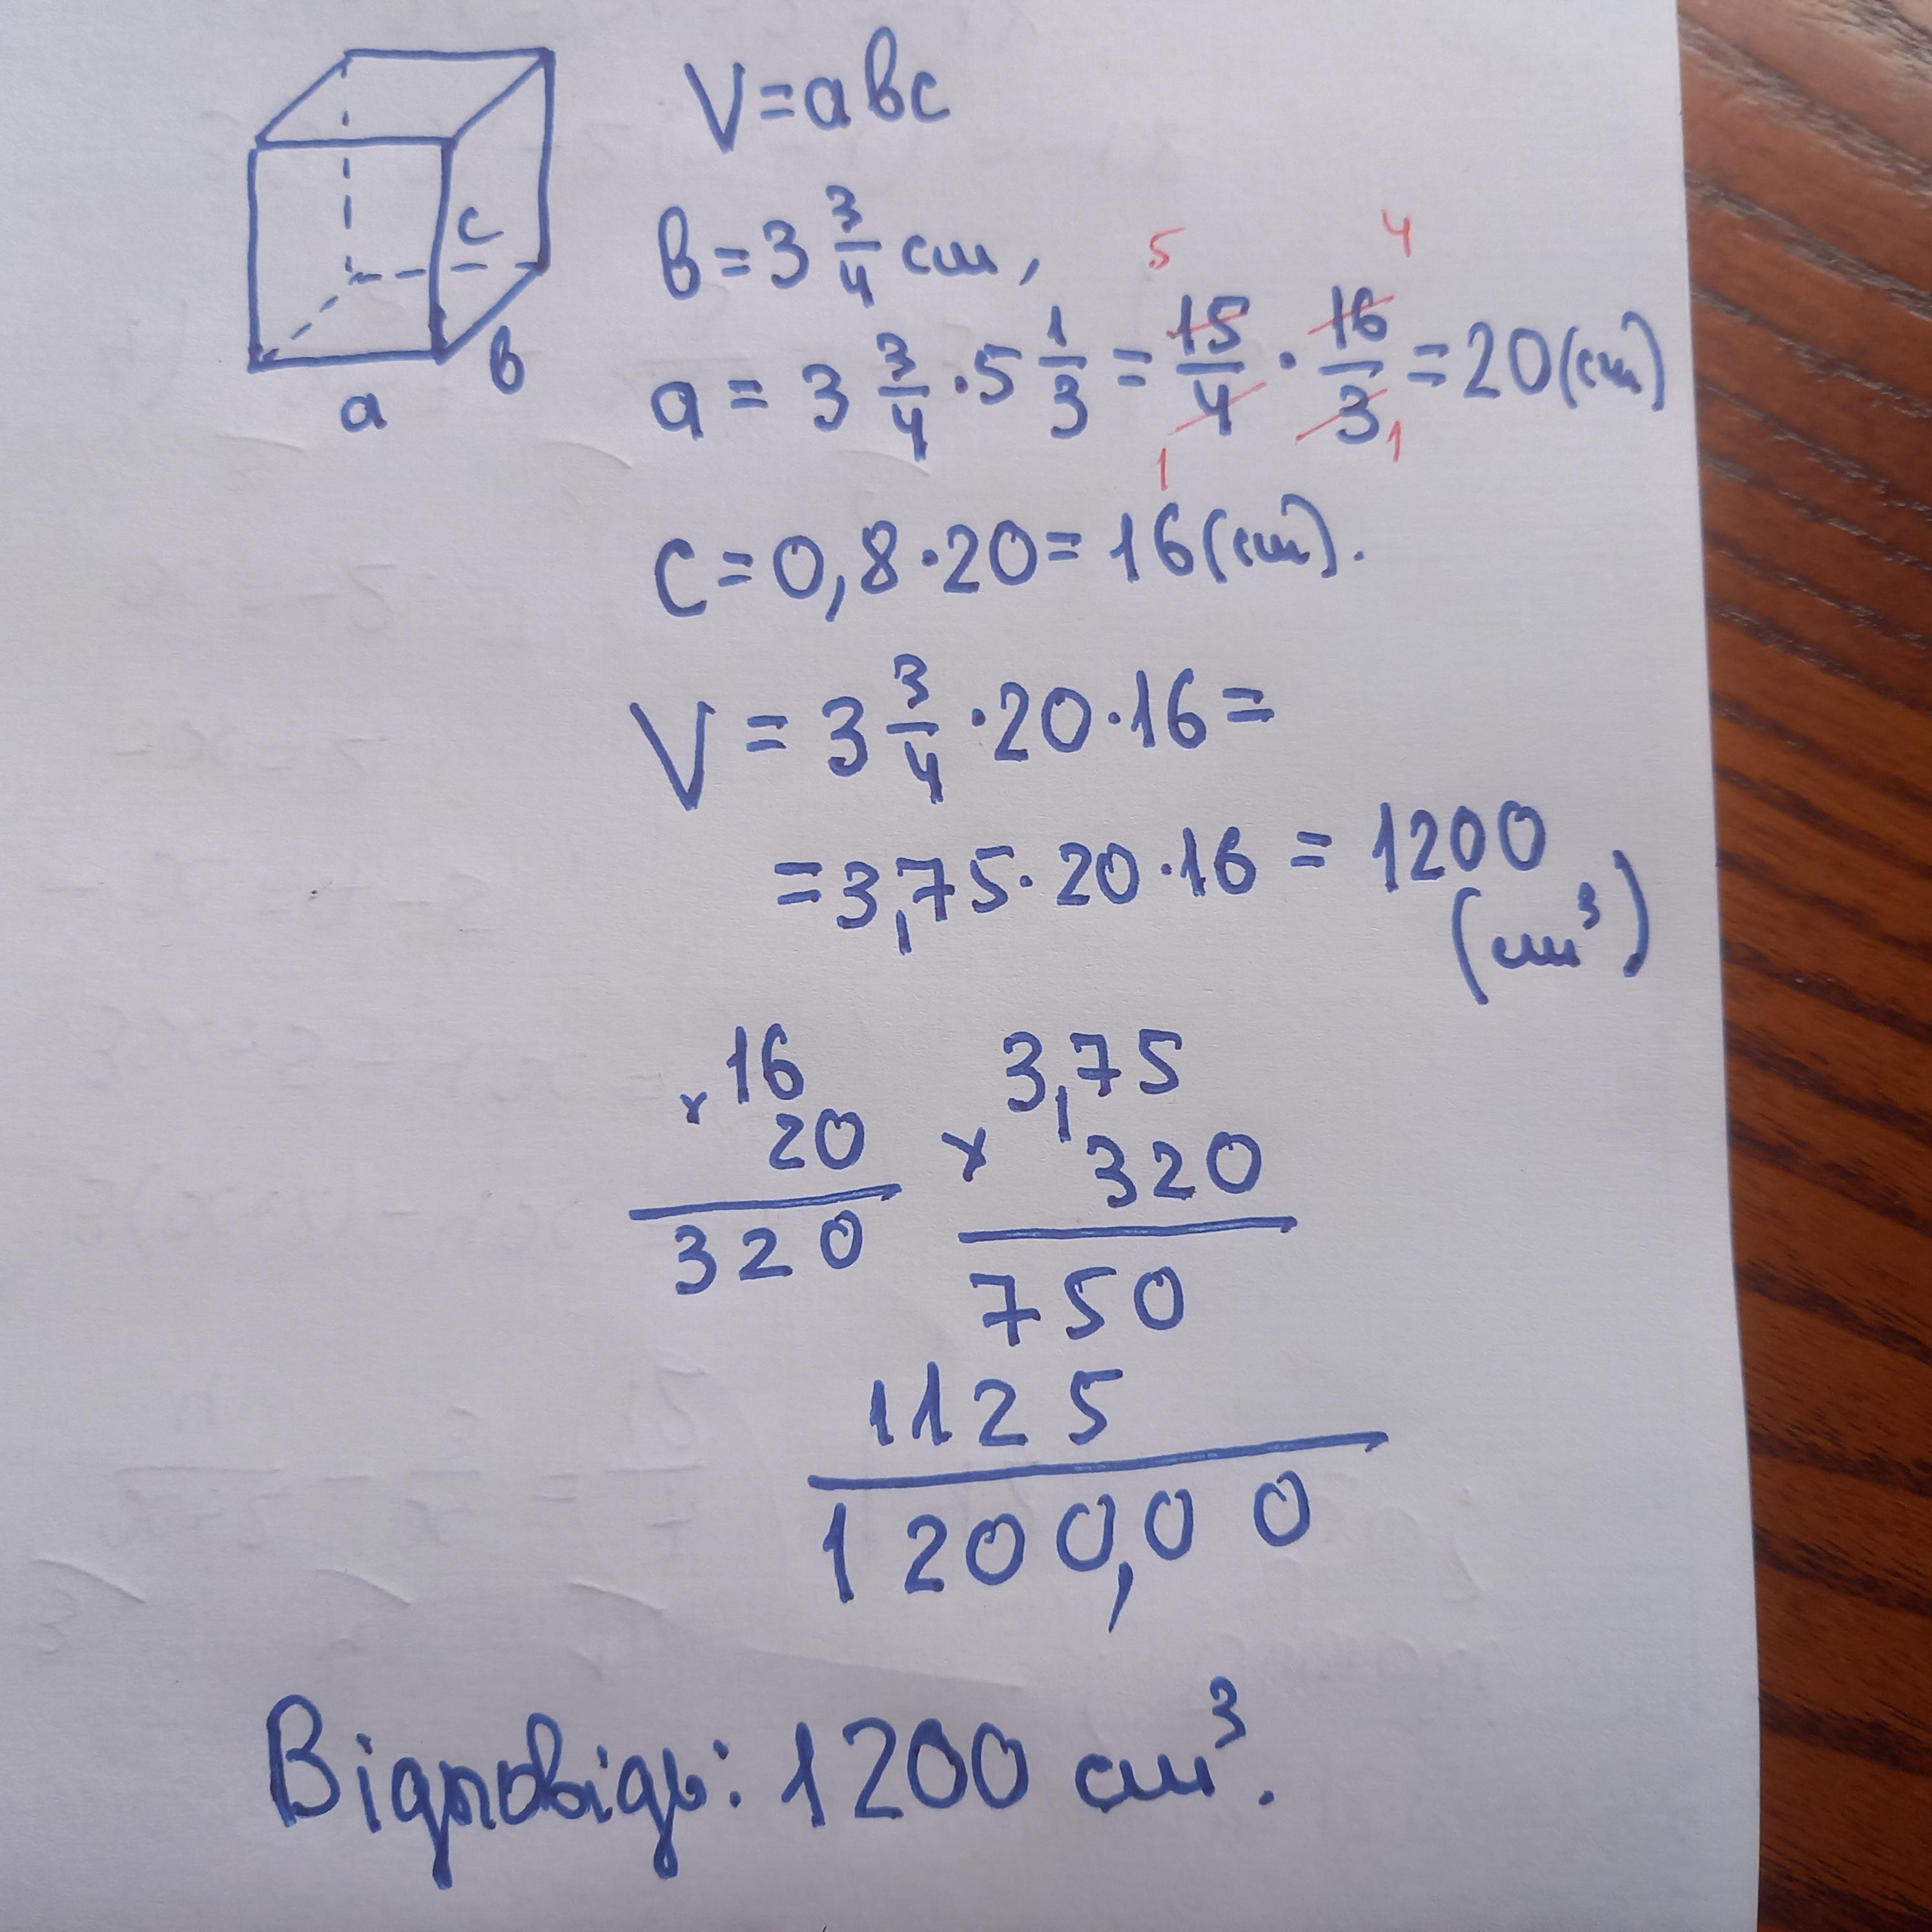 V=abc
b=3 3/4 см,
c
5 4
a = 3 3/4 · 5 1/3 = 15/4 · 16/3 = 20(см)
1 1
b
a
c=0,8·20=16(см).
V = 3 3/4 ·20·16=
=3,75·20·16 = 1200
(см³)
16 3,75
× 20 × 320
320 750
1125
1200,00
Відповідь: 1200 см³.